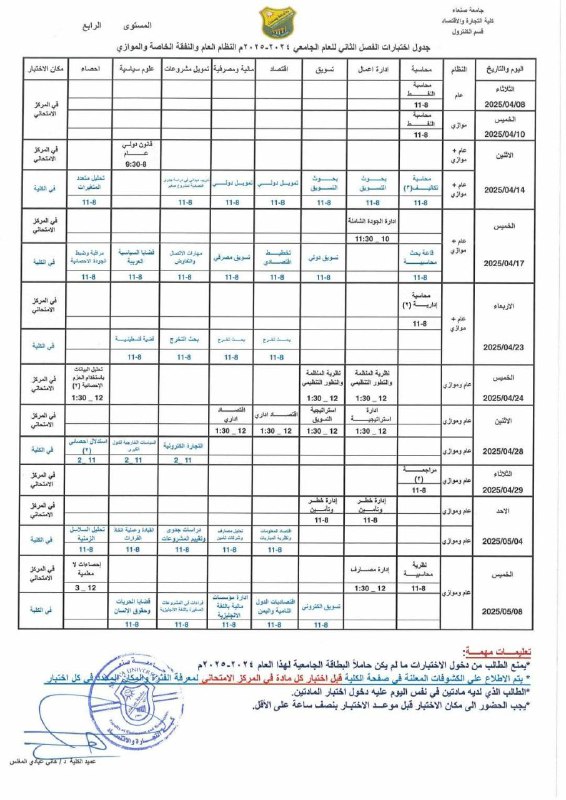 جامعة صنعاء
كلية التجارة والاقتصاد
قسم الكنترول
المستوى الرابع
جدول اختبارات الفصل الثاني للعام الجامعي ٢٠٢٤-٢٠٢٥م النظام العام والنفقة الخاصة والموازي
اليوم والتاريخ النظام محاسبة ادارة اعمال تسويق اقتصاد مالية ومصرفية تمويل مشروعات علوم سياسية احصاء مكان الاختبار
الثلاثاء 2025/04/08 عام محاسبة النفط 11-8 في المركز الامتحاني
الخميس 2025/04/10 موازي محاسبة النفط 11-8
الاثنين 2025/04/14 عام + موازي قانون دولي عام 9:30-8 في المركز الامتحاني
عام + موازي محاسبة تكاليف(٢) 11-8 بحوث التسويق 11-8 بحوث التسويق 11-8 تمويل دولي 11-8 تمويل دولي 11-8 11-8 تحليل متعدد المتغيرات 11-8 في الكلية
الخميس 2025/04/17 عام + موازي ادارة الجودة الشاملة 11:30 _ 10 في المركز الامتحاني
قاعة بحث محاسبية 11-8 تسويق دولي 11-8 تخطيط اقتصادي 11-8 تسويق مصرفي 11-8 مهارات الاتصال والتفاوض 11-8 قضايا السياسية العربية 11-8 مراقبة وضبط الجودة الاحصائية 11-8 في الكلية
الاربعاء 2025/04/23 عام + موازي محاسبة إدارية (٢) 11-8 في المركز الامتحاني
بحث تخرج 11-8 بحث تخرج 11-8 بحث التخرج 11-8 قضية فلسطينية 11-8 في الكلية
الخميس 2025/04/24 عام وموازي نظرية المنظمة والتطور التنظيمي 1:30 _ 12 نظرية المنظمة والتطور التنظيمي 1:30 _ 12 تحليل البيانات باستخدام الحزم الإحصائية (٢) 1:30 _ 12 في المركز الامتحاني
الاثنين 2025/04/28 عام وموازي ادارة استراتيجية 1:30 _ 12 استراتيجية التسويق 1:30 _ 12 اقتصاد اداري 1:30 _ 12 اقتصاد اداري 1:30 _ 12 في المركز الامتحاني
عام وموازي التجارة الكترونية 2_11 السياسات الخارجية للدول الكبرى 2_11 استدلال احصائي (٢) 2_11 في الكلية
الثلاثاء 2025/04/29 عام وموازي مراجعة (٢) 11-8 في المركز الامتحاني
الاحد 2025/05/04 عام وموازي إدارة خطر وتأمين 11-8 إدارة خطر وتأمين 11-8 في المركز الامتحاني
عام وموازي اقتصاد المعلومات ونظرية المباريات 11-8 تحليل مصارف وشركات تأمين 11-8 دراسات جدوى وتقييم المشروعات 11-8 القيادة وعملية اتخاذ القرارات 11-8 تحليل السلاسل الزمنية 11-8 في الكلية
الخميس 2025/05/08 عام وموازي نظرية محاسبية 11-8 إدارة مصارف 1:30 _ 12 إحصاءات لا معلمية 3 _ 12 في المركز الامتحاني
تسويق الكتروني 11-8 اقتصاديات الدول النامية واليمن 11-8 ادارة مؤسسات مالية باللغة الانجليزية 11-8 قراءات في المشروعات الصغيرة باللغة الانجليزية 11-8 قضايا الحريات وحقوق الانسان 11-8 في الكلية
تعليمات مهمة:
*يمنع الطالب من دخول الاختبارات ما لم يكن حاملاً البطاقة الجامعية لهذا العام ٢٠٢٤-٢٠٢٥م
* يتم الاطلاع على الكشوفات المعلنة في صفحة الكلية قبل اختبار كل مادة في المركز الامتحاني لمعرفة الفترة والمكان المحدد في كل اختبار
*الطالب الذي لديه مادتين في نفس اليوم عليه دخول اختبار المادتين.
*يجب الحضور الى مكان الاختبار قبل موعد الاختبار بنصف ساعة على الأقل.
عميد الكلية د/